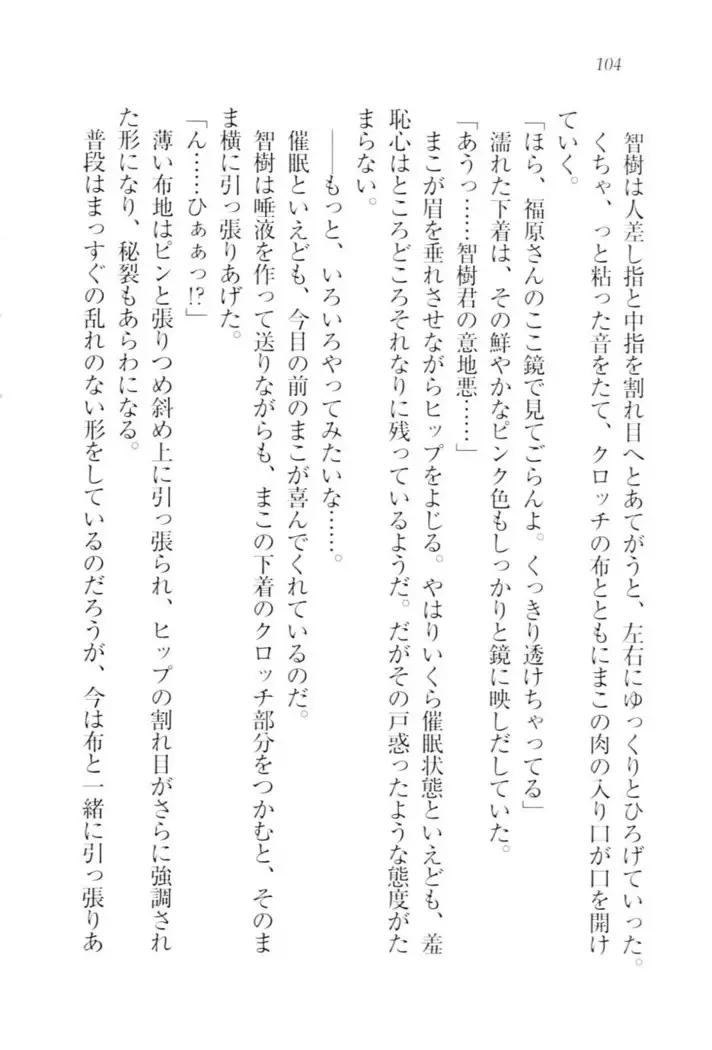 104
智樹は人差し指と中指を割れ目へとあてがうと、左右にゆっくりとひろげていった。
くちゃ、っと粘った音をたて、クロッチの布とともにまこの肉の入り口が口を開け
ていく。
「ほら、福原さんのここ鏡で見てごらんよ。くっきり透けちゃってる」
濡れた下着は、その鮮やかなピンク色もしっかりと鏡に映しだしていた。
「あうっ……智樹君の意地悪……」
まこが眉を垂れさせながらヒップをよじる。やはりいくら催眠状態といえども、羞
恥心はところどころそれなりに残っているようだ。だがその戸惑ったような態度がた
まらない。
――もっと、いろいろやってみたいな……。
催眠といえども、今目の前のまこが喜んでくれているのだ。
智樹は唾液を作って送りながらも、まこの下着のクロッチ部分をつかむと、そのま
ま横に引っ張りあげた。
「ん……ひぁぁっ!?」
薄い布地はピンと張りつめ斜め上に引っ張られ、ヒップの割れ目がさらに強調され
た形になり、秘裂もあらわになる。
普段はまっすぐの乱れのない形をしているのだろうが、今は布と一緒に引っ張りあ